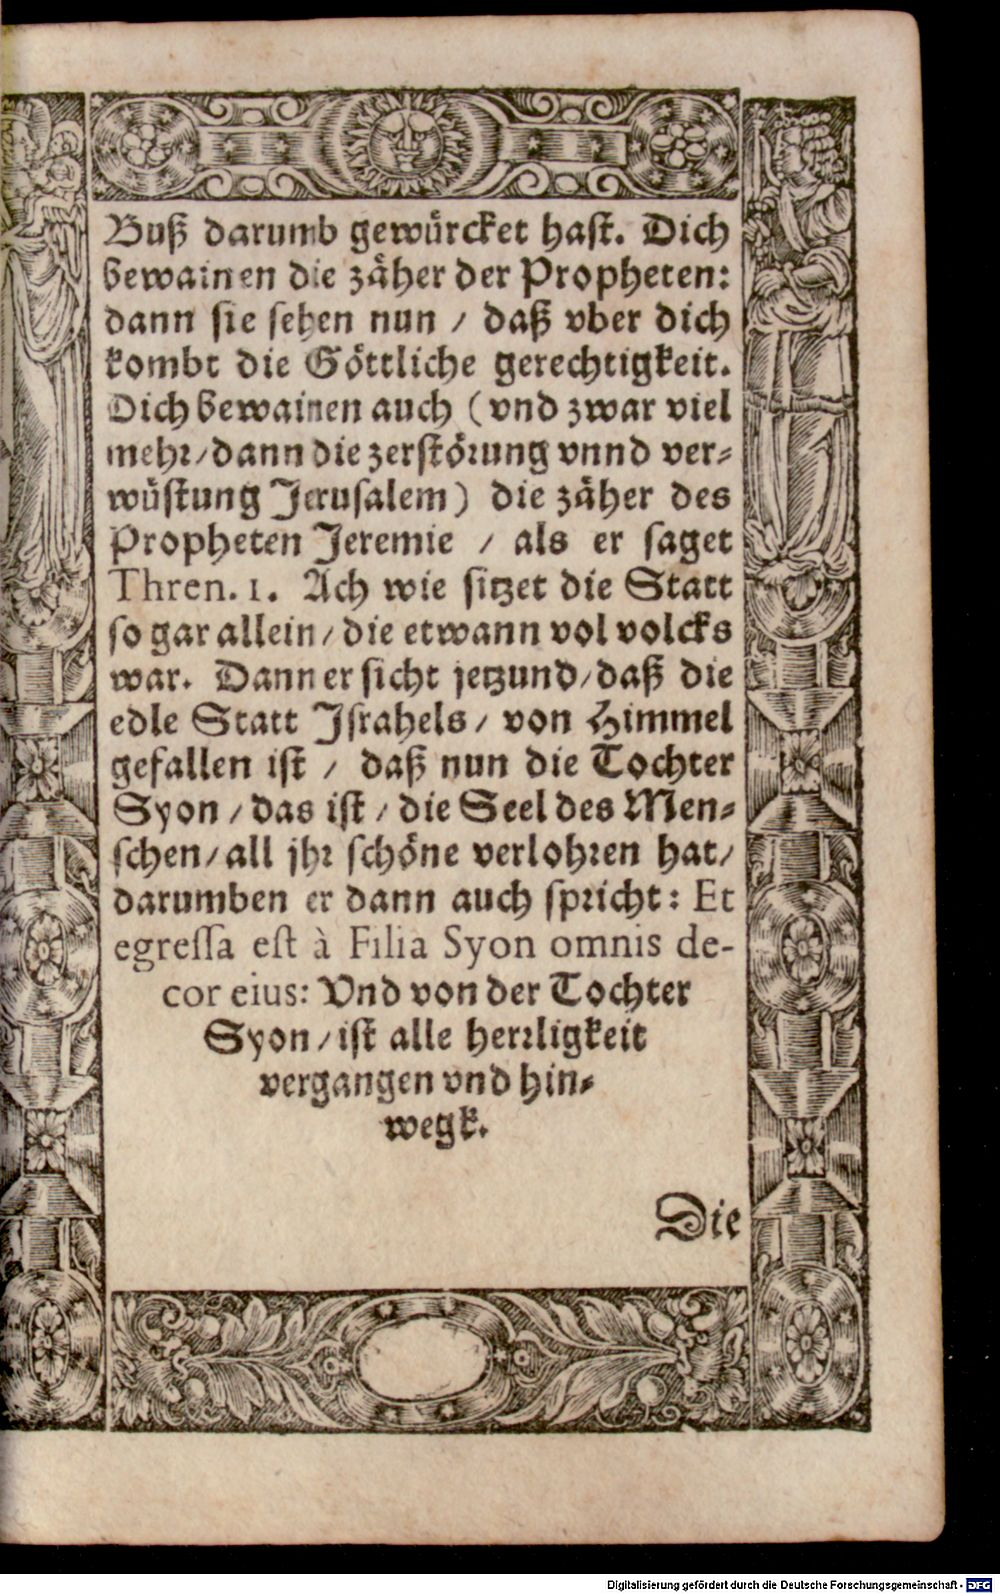 Buß darumb gewürcket hast. Dich
bewainen die zäher der Propheten:
dann sie sehen nun / daß vber dich
kombt die Göttliche gerechtigkeit.
Dich bewainen auch (vnd zwar viel
mehr/dann die zerstörung vnnd ver-
wüstung Jerusalem) die zäher des
Propheten Jeremie / als er saget
Thren. 1. Ach wie sitzet die Statt
so gar allein/die etwann vol volcks
war. Dann er sicht jetzund/daß die
edle Statt Israhels/ von Himmel
gefallen ist / daß nun die Tochter
Syon/das ist/die Seel des Men-
schen/all jhr schöne verlohren hat/
darumben er dann auch spricht: Et
egressa est à Filia Syon omnis de-
cor eius: Vnd von der Tochter
Syon/ist alle herrligkeit
vergangen vnd hin-
wegk.
Die
Digitalisierung gefördert durch die Deutsche Forschungsgemeinschaft - DFG